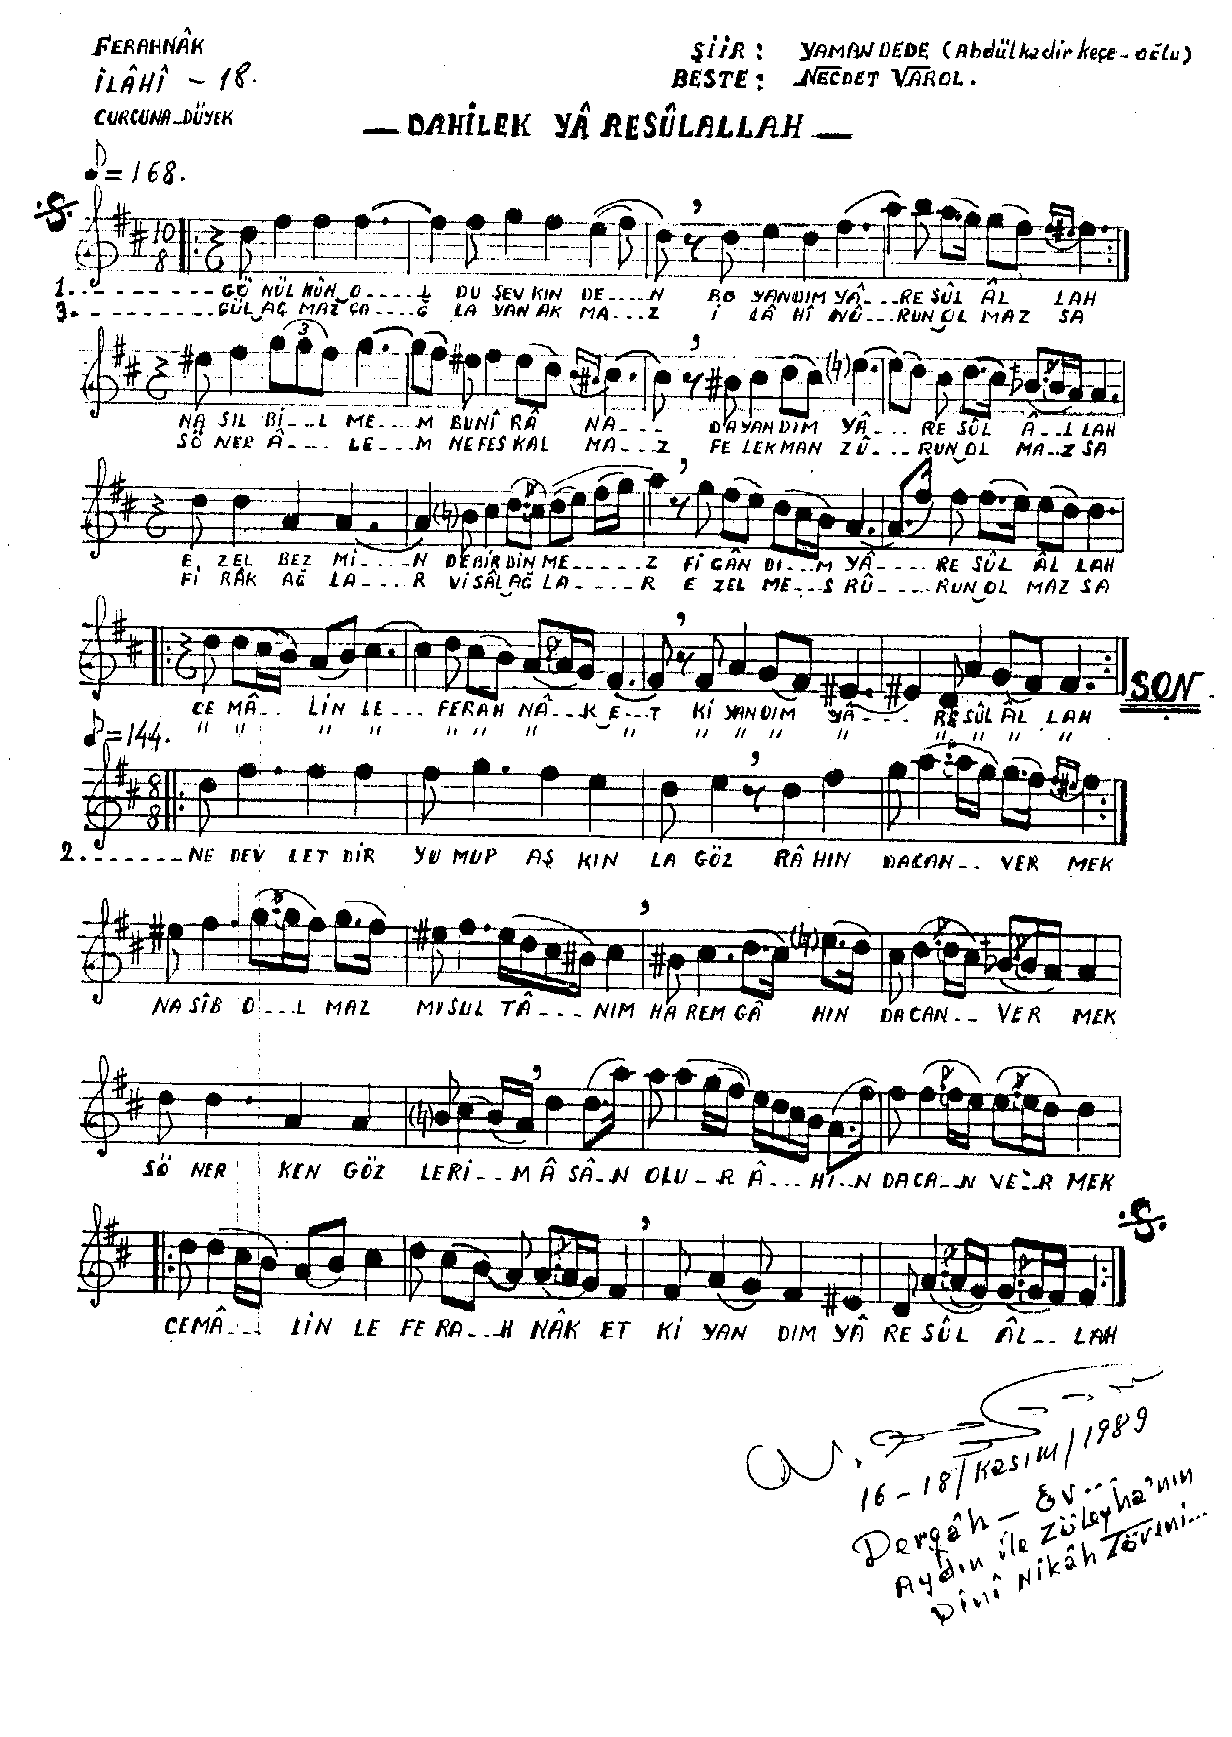 FERAHNÂK
İLÂHÎ - 18.
CURCUNA-DÜYEK
ŞİİR : YAMAN DEDE (Abdülkadir keçe-oğlu)
BESTE : NECDET VAROL.
— DAHİLEK YÂ RESÛLALLAH —
♪=168.
10/8
1.--------GÖ NÜL HÛN O....L DU ŞEVKIN DE...N BO YANDIM YÂ...RE SÛL ÂL LAH
3.--------GÜL AÇ MAZ ÇA...Ğ LA YAN AK MA...Z İ LÂ HÎ NÛ...RUN OL MAZ SA
3
NA SIL Bİ...L ME...M BU NÎ RÂ NA... DAYAN DIM YÂ...RE SÛL Â..L LAH
SÖ NER Â...LE...M NEFES KAL MA...Z FE LEK MAN ZÛ...RUN OL MA..Z SA
E ZEL BEZ Mİ...N DE BİR DİN ME.....Z Fİ GÂN DI...M YÂ...RE SÛL ÂL LAH
Fİ RÂK AĞ LA...R VİSÂL AĞ LA...R E ZEL ME...S RÛ...RUN OL MAZ SA
CE MÂ.. LİN LE... FERAH NÂ..K E..T Kİ YANDIM YÂ.... RE SÛL ÂL LAH
SON
" " " " " " " " " " " " " " " "
♪=144.
8/8
2.------NE DEV LET DİR YU MUP AŞ KIN LA GÖZ RÂ HIN DA CAN.. VER MEK
NA SÎB O...L MAZ MI SUL TÂ...NIM HA REM GÂ HIN DA CAN.. VER MEK
SÖ NER KEN GÖZ LERİ..M Â SÂ..N OLU..R Â...HI..N DA CA..N VE..R MEK
CEMÂ.... LİN LE FE RA...H NÂK ET Kİ YAN DIM YÂ RE SÛL ÂL.. LAH
16-18/Kasım/1989
Dergâh - Ev...
Aydın ile Züleyha'nın
Dînî Nikâh Töreni...